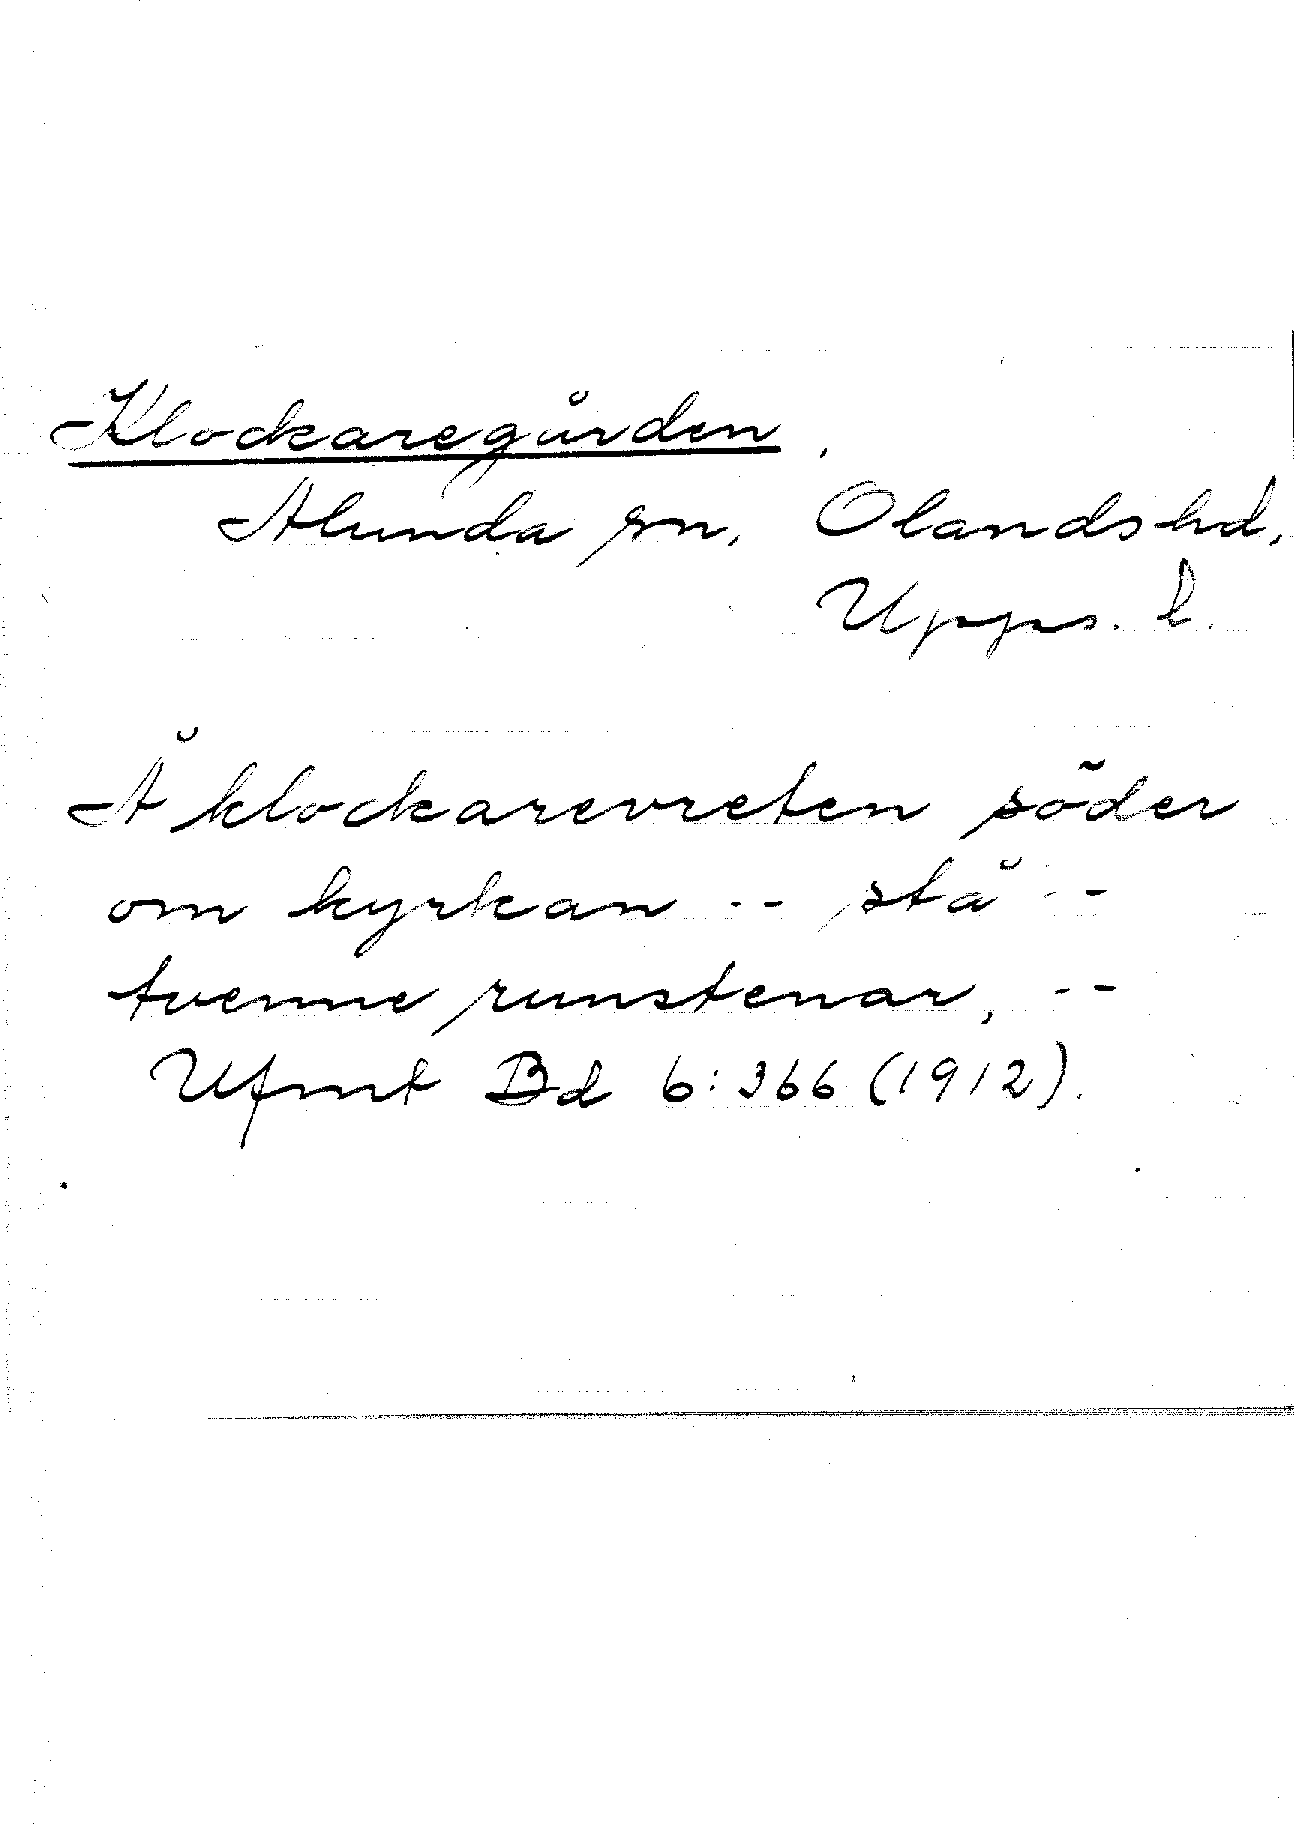 Klockaregården,
Alunda sn, Olands hd,
Upps. l.
Å klockarevreten söder
om kyrkan -- stå --
tvenne runstenar, --
Ufmt Bd 6:366 (1912).